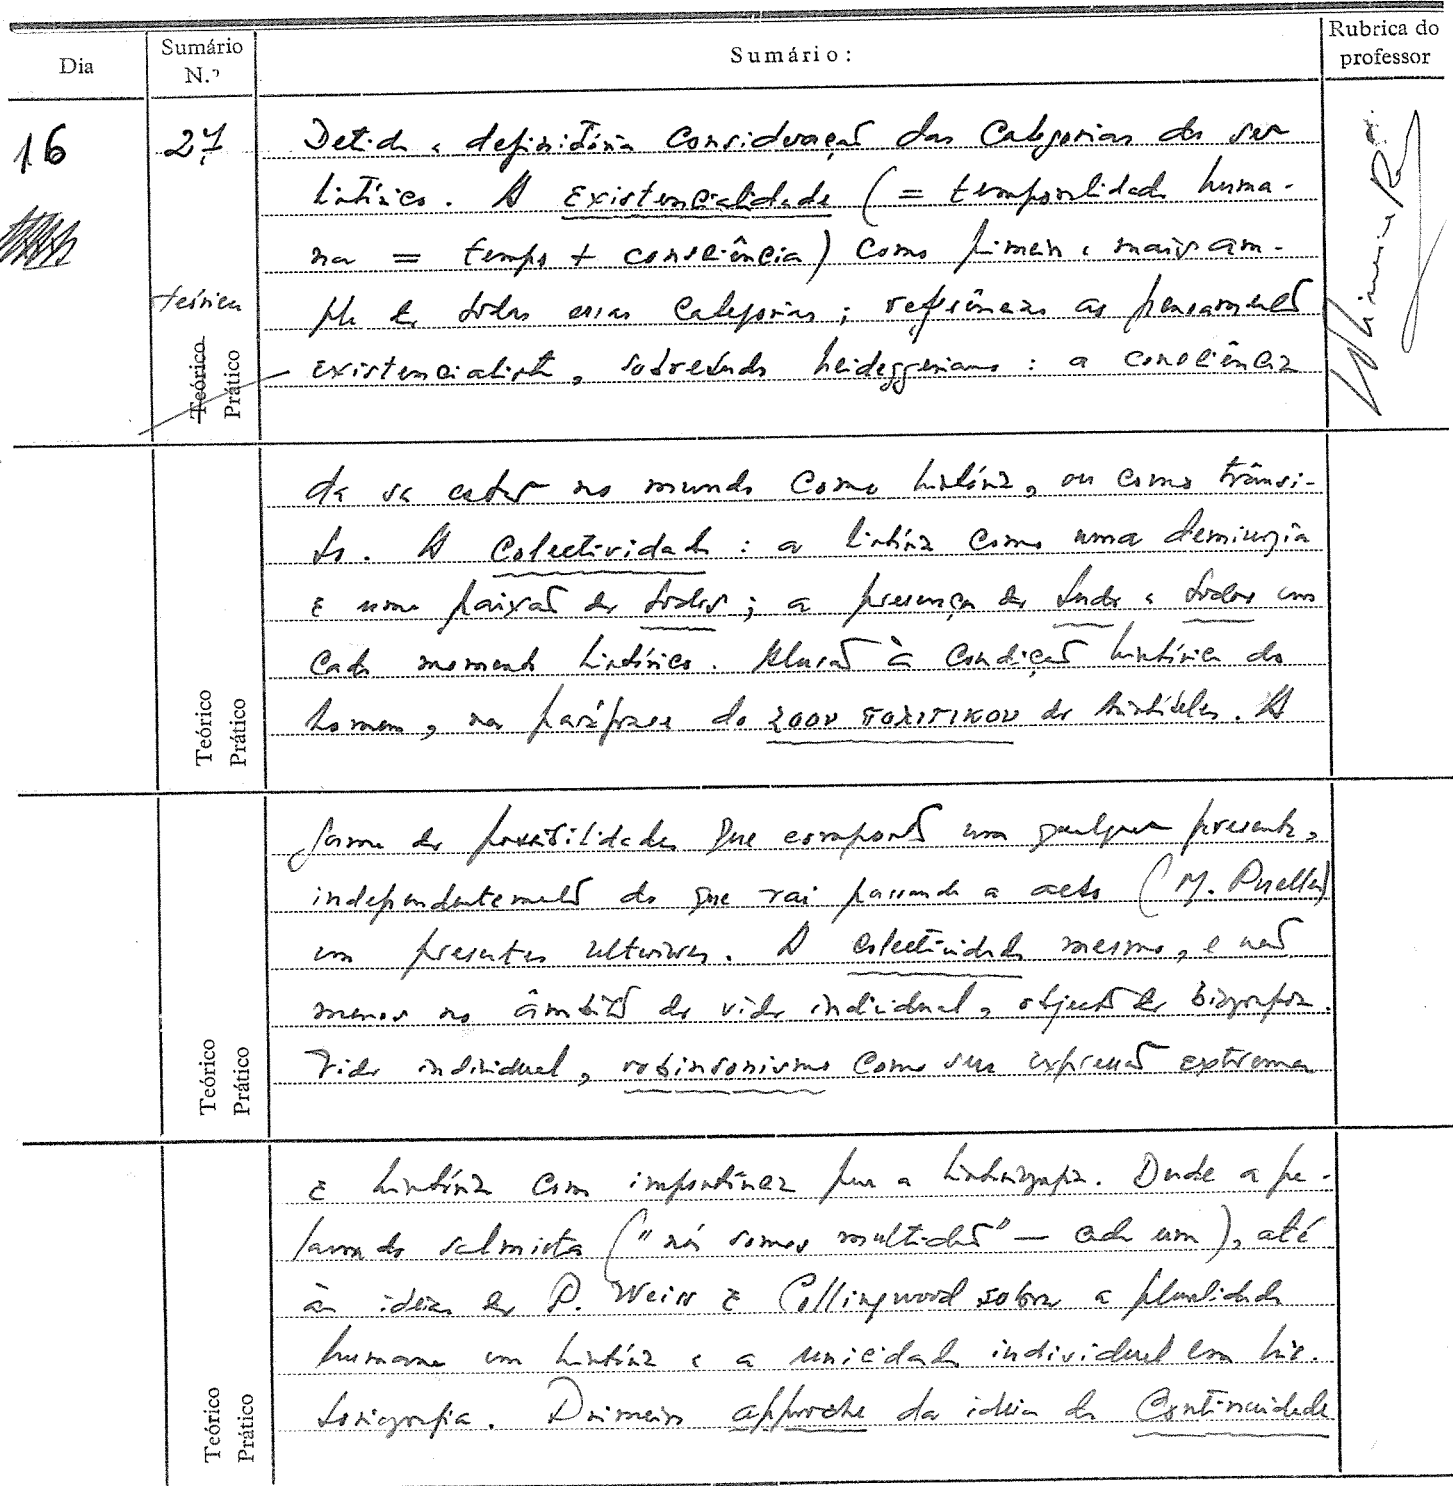 Dia
Sumário N.º
Sumário:
Rubrica do professor
16
27
Detida e definitória consideração das categorias do ser
histórico. A existencialidade (= temporalidade huma-
na = tempo + consciência) como primeira e mais am-
pla de todas essas categorias; referências ao pensamento
existencialista, sobretudo heideggeriano: a consciência
teórica
Teórico
Prático
de se estar no mundo como história, ou como trânsi-
to. A Colectividade: a história como uma demiurgia
e uma paixão de todos; a presença de tudo e todos em
cada momento histórico. Alusão à condição histórica do
homem, na paráfrase do ζοον πολιτικον de Aristóteles. A
Teórico
Prático
soma de possibilidades que comporta um qualquer presente,
independentemente do que vai passando a acto (M. Puelles)
em presentes ulteriores. A colectividade mesmo, e não
menos no âmbito da vida individual, objecto de biografia.
Vida individual, robinsonismo como sua expressão extrema
Teórico
Prático
e história com importância para a historiografia. Desde a pa-
lavra do salmista ("nós somos multidão" — cada um), até
às ideias de P. Weiss e Collingwood sobre a pluralidade
humana em história e a unicidade individual em his-
toriografia. Primeira approche da ideia de Continuidade
Teórico
Prático